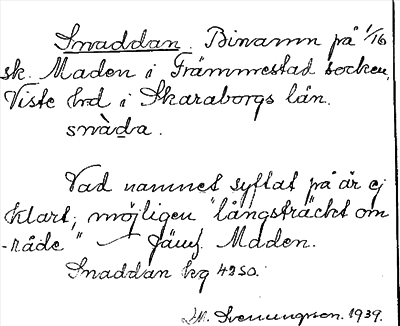 Snaddan. Binamn på 1/16
sk. Maden i Främmestad socken,
Viste hrd i Skaraborgs län.
snàda.
Vad namnet syftat på är ej
klart; möjligen "långsträckt om
-råde" — Jämf. Maden.
Snaddan kg 4250.
Sveningson. 1939.